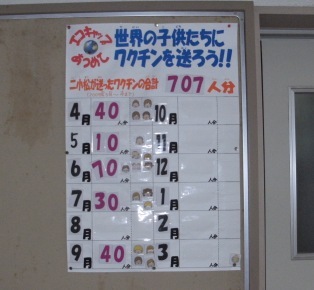 エコキャップ
あつめて
世界の子供たちに
ワクチンを送ろう!!
二小松が送ったワクチンの合計 707人分
4月 40人分 10月 人分
5月 10人分 11月 人分
6月 70人分 12月 人分
7月 30人分 1月 人分
8月 人分 2月 人分
9月 40人分 3月 人分